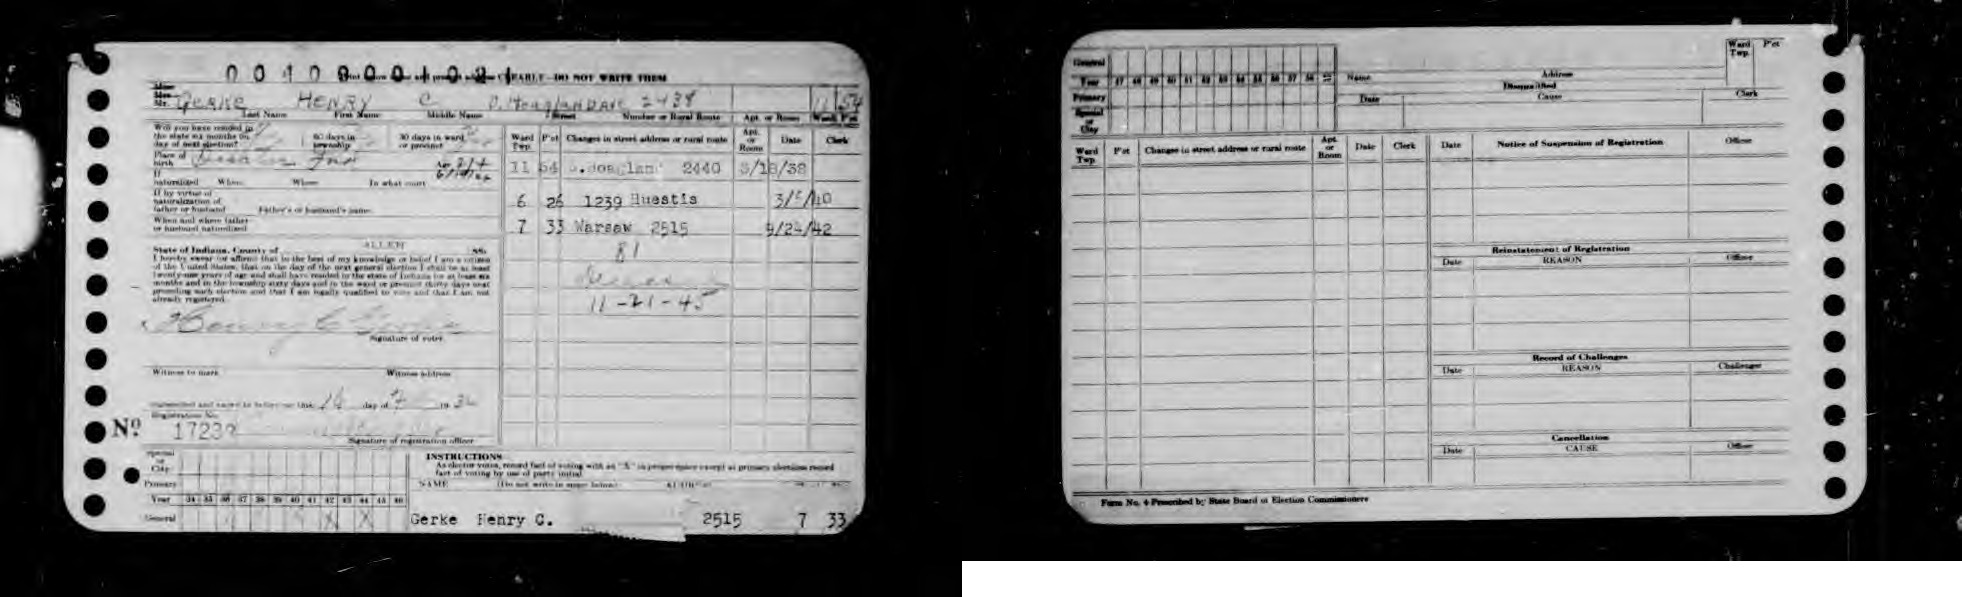 0010900101
CLEARLY—DO NOT WRITE THEM
Mrs.
Mr. GERKE HENRY C S. HOAGLAND AVE 2438 11 54
Last Name First Name Middle Name Street Number or Rural Route Apt. or Room Ward P'ct
Will you have resided in
the state six months on
day of next election?
60 days in
township
30 days in ward
or precinct
Place of
birth Ind
If
naturalized When Where In what court
If by virtue of
naturalization of
father or husband Father's or husband's name
When and where father
or husband naturalized
State of Indiana, County of ALLEN SS:
I hereby swear (or affirm) that to the best of my knowledge or belief I am a citizen
of the United States; that on the day of the next general election I shall be at least
twenty-one years of age and shall have resided in the state of Indiana for at least six
months and in the township sixty days and in the ward or precinct thirty days next
preceding such election and that I am legally qualified to vote and that I am not
already registered.
x Henry C Gerke
Signature of voter
Witness to mark Witness address
Subscribed and sworn to before me this 14 day of 19
Registration No.
Nº 17239
Signature of registration officer
Ward Twp. P'ct Changes in street address or rural route Apt. or Room Date Clerk
11 54 S. Hoagland 2440 3/18/38
6 26 1239 Huestis 3/5/40
7 33 Warsaw 2515 9/24/42
81
11-21-45
Special
or
City
Primary
Year 34 35 36 37 38 39 40 41 42 43 44 45 46
General X X
INSTRUCTIONS
As elector votes, record fact of voting with an "X" in proper space except at primary elections record
fact of voting by use of party initial.
NAME (Do not write in space below)
Gerke Henry C. 2515 7 33
General
Year 47 48 49 50 51 52 53 54 55 56 57 58 59
Primary
Special
or
City
Name Address
Disqualified
Date Cause Clerk
Ward
Twp. P'ct
Ward
Twp P'ct Changes in street address or rural route Apt.
or
Room Date Clerk
Date Notice of Suspension of Registration Officer
Reinstatement of Registration
Date REASON Officer
Record of Challenges
Date REASON Challenger
Cancellation
Date CAUSE Officer
Form No. 4 Prescribed by State Board of Election Commissioners